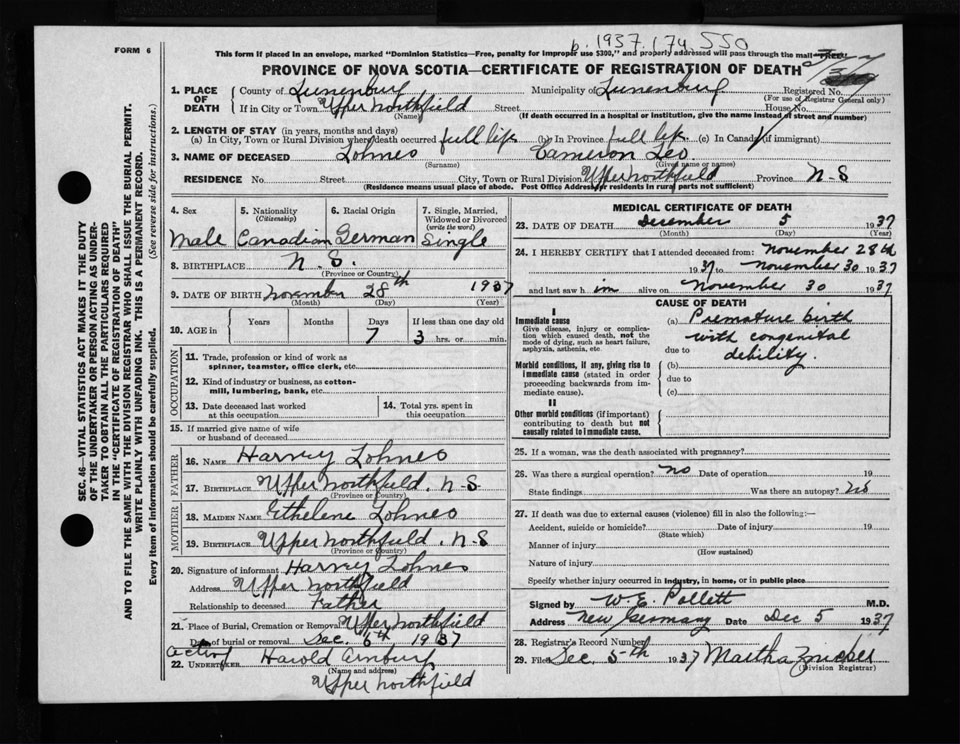 FORM 6
b. 1937. 174 550
This form if placed in an envelope, marked "Dominion Statistics—Free, penalty for improper use $300," and properly addressed will pass through the mail FREE.
PROVINCE OF NOVA SCOTIA—CERTIFICATE OF REGISTRATION OF DEATH
1. PLACE OF DEATH
County of Lunenburg Municipality of Lunenburg Registered No.
(For use of Registrar General only)
If in City or Town Upper Northfield Street House No.
(Name) (If death occurred in a hospital or institution, give the name instead of street and number)
2. LENGTH OF STAY (in years, months and days)
(a) In City, Town or Rural Division where death occurred full life (b) In Province full life (c) In Canada (if immigrant)
3. NAME OF DECEASED Lohnes Cameron Leo
(Surname) (Given name or names)
RESIDENCE No. Street City, Town or Rural Division Upper Northfield Province N-S
(Residence means usual place of abode. Post Office Address for residents in rural parts not sufficient)
4. Sex 5. Nationality (Citizenship) 6. Racial Origin 7. Single, Married, Widowed or Divorced (write the word)
Male Canadian German Single
8. BIRTHPLACE N. S.
(Province or Country)
9. DATE OF BIRTH November 28th 1937
(Month) (Day) (Year)
10. AGE in Years Months Days If less than one day old
7 3 hrs. or min.
OCCUPATION
11. Trade, profession or kind of work as spinner, teamster, office clerk, etc.
12. Kind of industry or business, as cotton-mill, lumbering, bank, etc.
13. Date deceased last worked at this occupation
14. Total yrs. spent in this occupation
15. If married give name of wife or husband of deceased
FATHER
16. NAME Harvey Lohnes
17. BIRTHPLACE Upper Northfield. N-S.
(Province or Country)
MOTHER
18. MAIDEN NAME Ethelene Lohnes
19. BIRTHPLACE Upper Northfield. N-S
(Province or Country)
20. Signature of informant Harvey Lohnes
Address Upper Northfield
Relationship to deceased Father
21. Place of Burial, Cremation or Removal Upper Northfield
Date of burial or removal Dec. 6th 1937
acting
22. UNDERTAKER Harold
(Name and address)
Upper Northfield
MEDICAL CERTIFICATE OF DEATH
23. DATE OF DEATH December 5 1937
(Month) (Day) (Year)
24. I HEREBY CERTIFY that I attended deceased from: November 28th
1937 to November 30 1937
and last saw h im alive on November 30 1937
CAUSE OF DEATH
I
Immediate cause
Give disease, injury or complication which caused death, not the mode of dying, such as heart failure, asphyxia, asthenia, etc
(a) Premature birth
with congenital
due to debility.
Morbid conditions, if any, giving rise to immediate cause (stated in order proceeding backwards from immediate cause).
(b)
due to
(c)
II
Other morbid conditions (if important) contributing to death but not causally related to immediate cause.
25. If a woman, was the death associated with pregnancy?
26. Was there a surgical operation? no Date of operation 19
State findings Was there an autopsy? no
27. If death was due to external causes (violence) fill in also the following:—
Accident, suicide or homicide? Date of injury 19
(State which)
Manner of injury
(How sustained)
Nature of injury
Specify whether injury occurred in industry, in home, or in public place
Signed by W. E. Pollett M.D.
Address New Germany Date Dec 5 1937
28. Registrar's Record Number
29. Filed Dec. 5-th 1937 Martha Zwicker
(Division Registrar)
SEC. 46—VITAL STATISTICS ACT MAKES IT THE DUTY
OF THE UNDERTAKER OR PERSON ACTING AS UNDER-
TAKER TO OBTAIN ALL THE PARTICULARS REQUIRED
IN THE "CERTIFICATE OF REGISTRATION OF DEATH"
AND TO FILE THE SAME WITH THE DIVISION REGISTRAR WHO SHALL ISSUE THE BURIAL PERMIT.
WRITE PLAINLY WITH UNFADING INK. THIS IS A PERMANENT RECORD.
Every item of information should be carefully supplied. (See reverse side for instructions.)